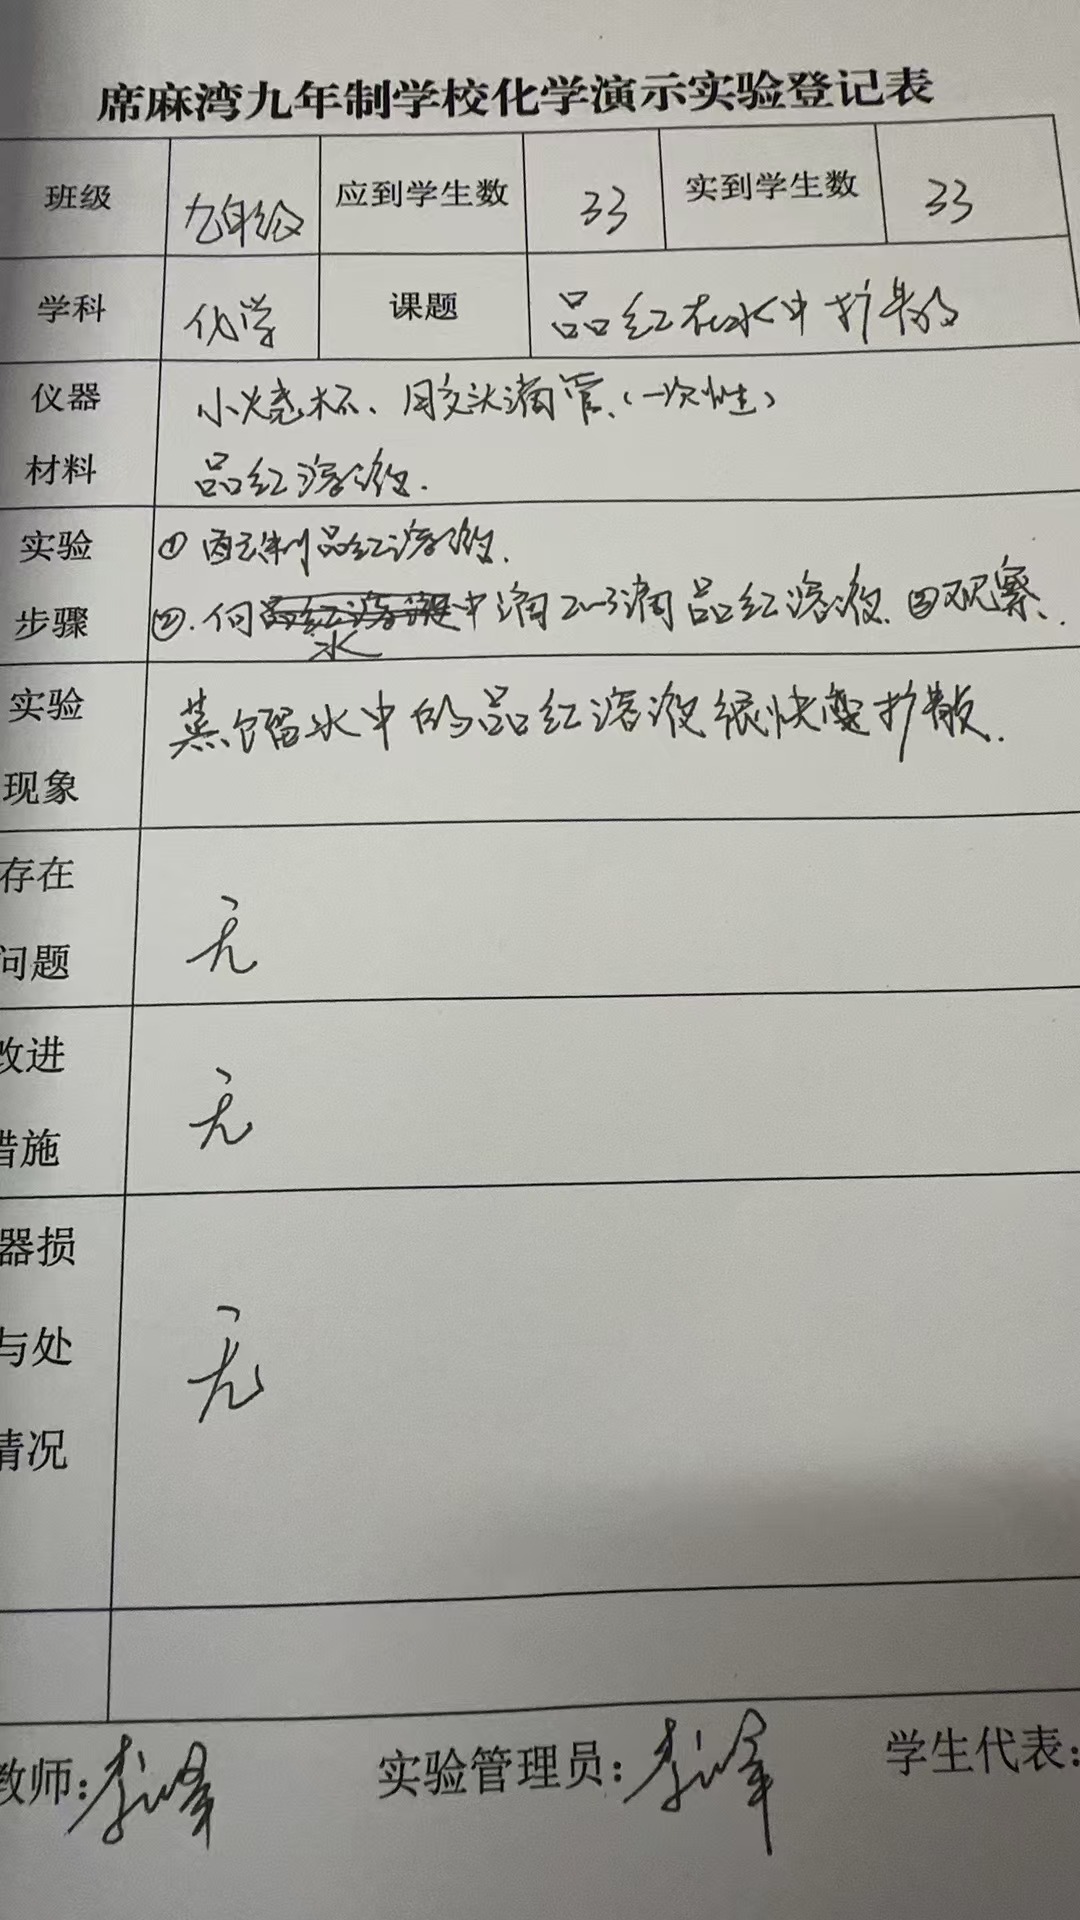 席麻湾九年制学校化学演示实验登记表
班级 九年级 应到学生数 33 实到学生数 33
学科 化学 课题 品红在水中扩散
仪器 小烧杯、胶头滴管、(一次性)
材料 品红溶液.
实验 ① 配制品红溶液.
步骤 ②.向水中滴2~3滴品红溶液. ③观察.
实验 蒸馏水中的品红溶液很快变扩散.
现象
存在
问题 无
改进
措施 无
器损
与处 无
情况
教师: 李峰 实验管理员: 李峰 学生代表: